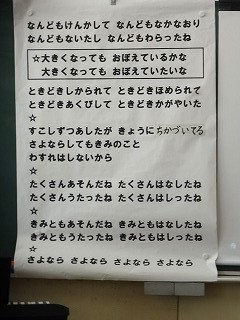 なんどもけんかして なんどもなかなおり
なんどもないたし なんどもわらったね
☆大きくなっても おぼえているかな
大きくなっても おぼえていたいな
ときどきしかられて ときどきほめられて
ときどきあくびして ときどきかがやいた
☆
すこしずつあしたが きょうにちかづいてる
さよならしてもきみのこと
わすれはしないから
☆
たくさんあそんだね たくさんはなしたね
たくさんうたったね たくさんはしったね
☆
きみともあそんだね きみともはなしたね
きみともうたったね きみともはしったね
☆
さよなら さよなら さよなら さよなら